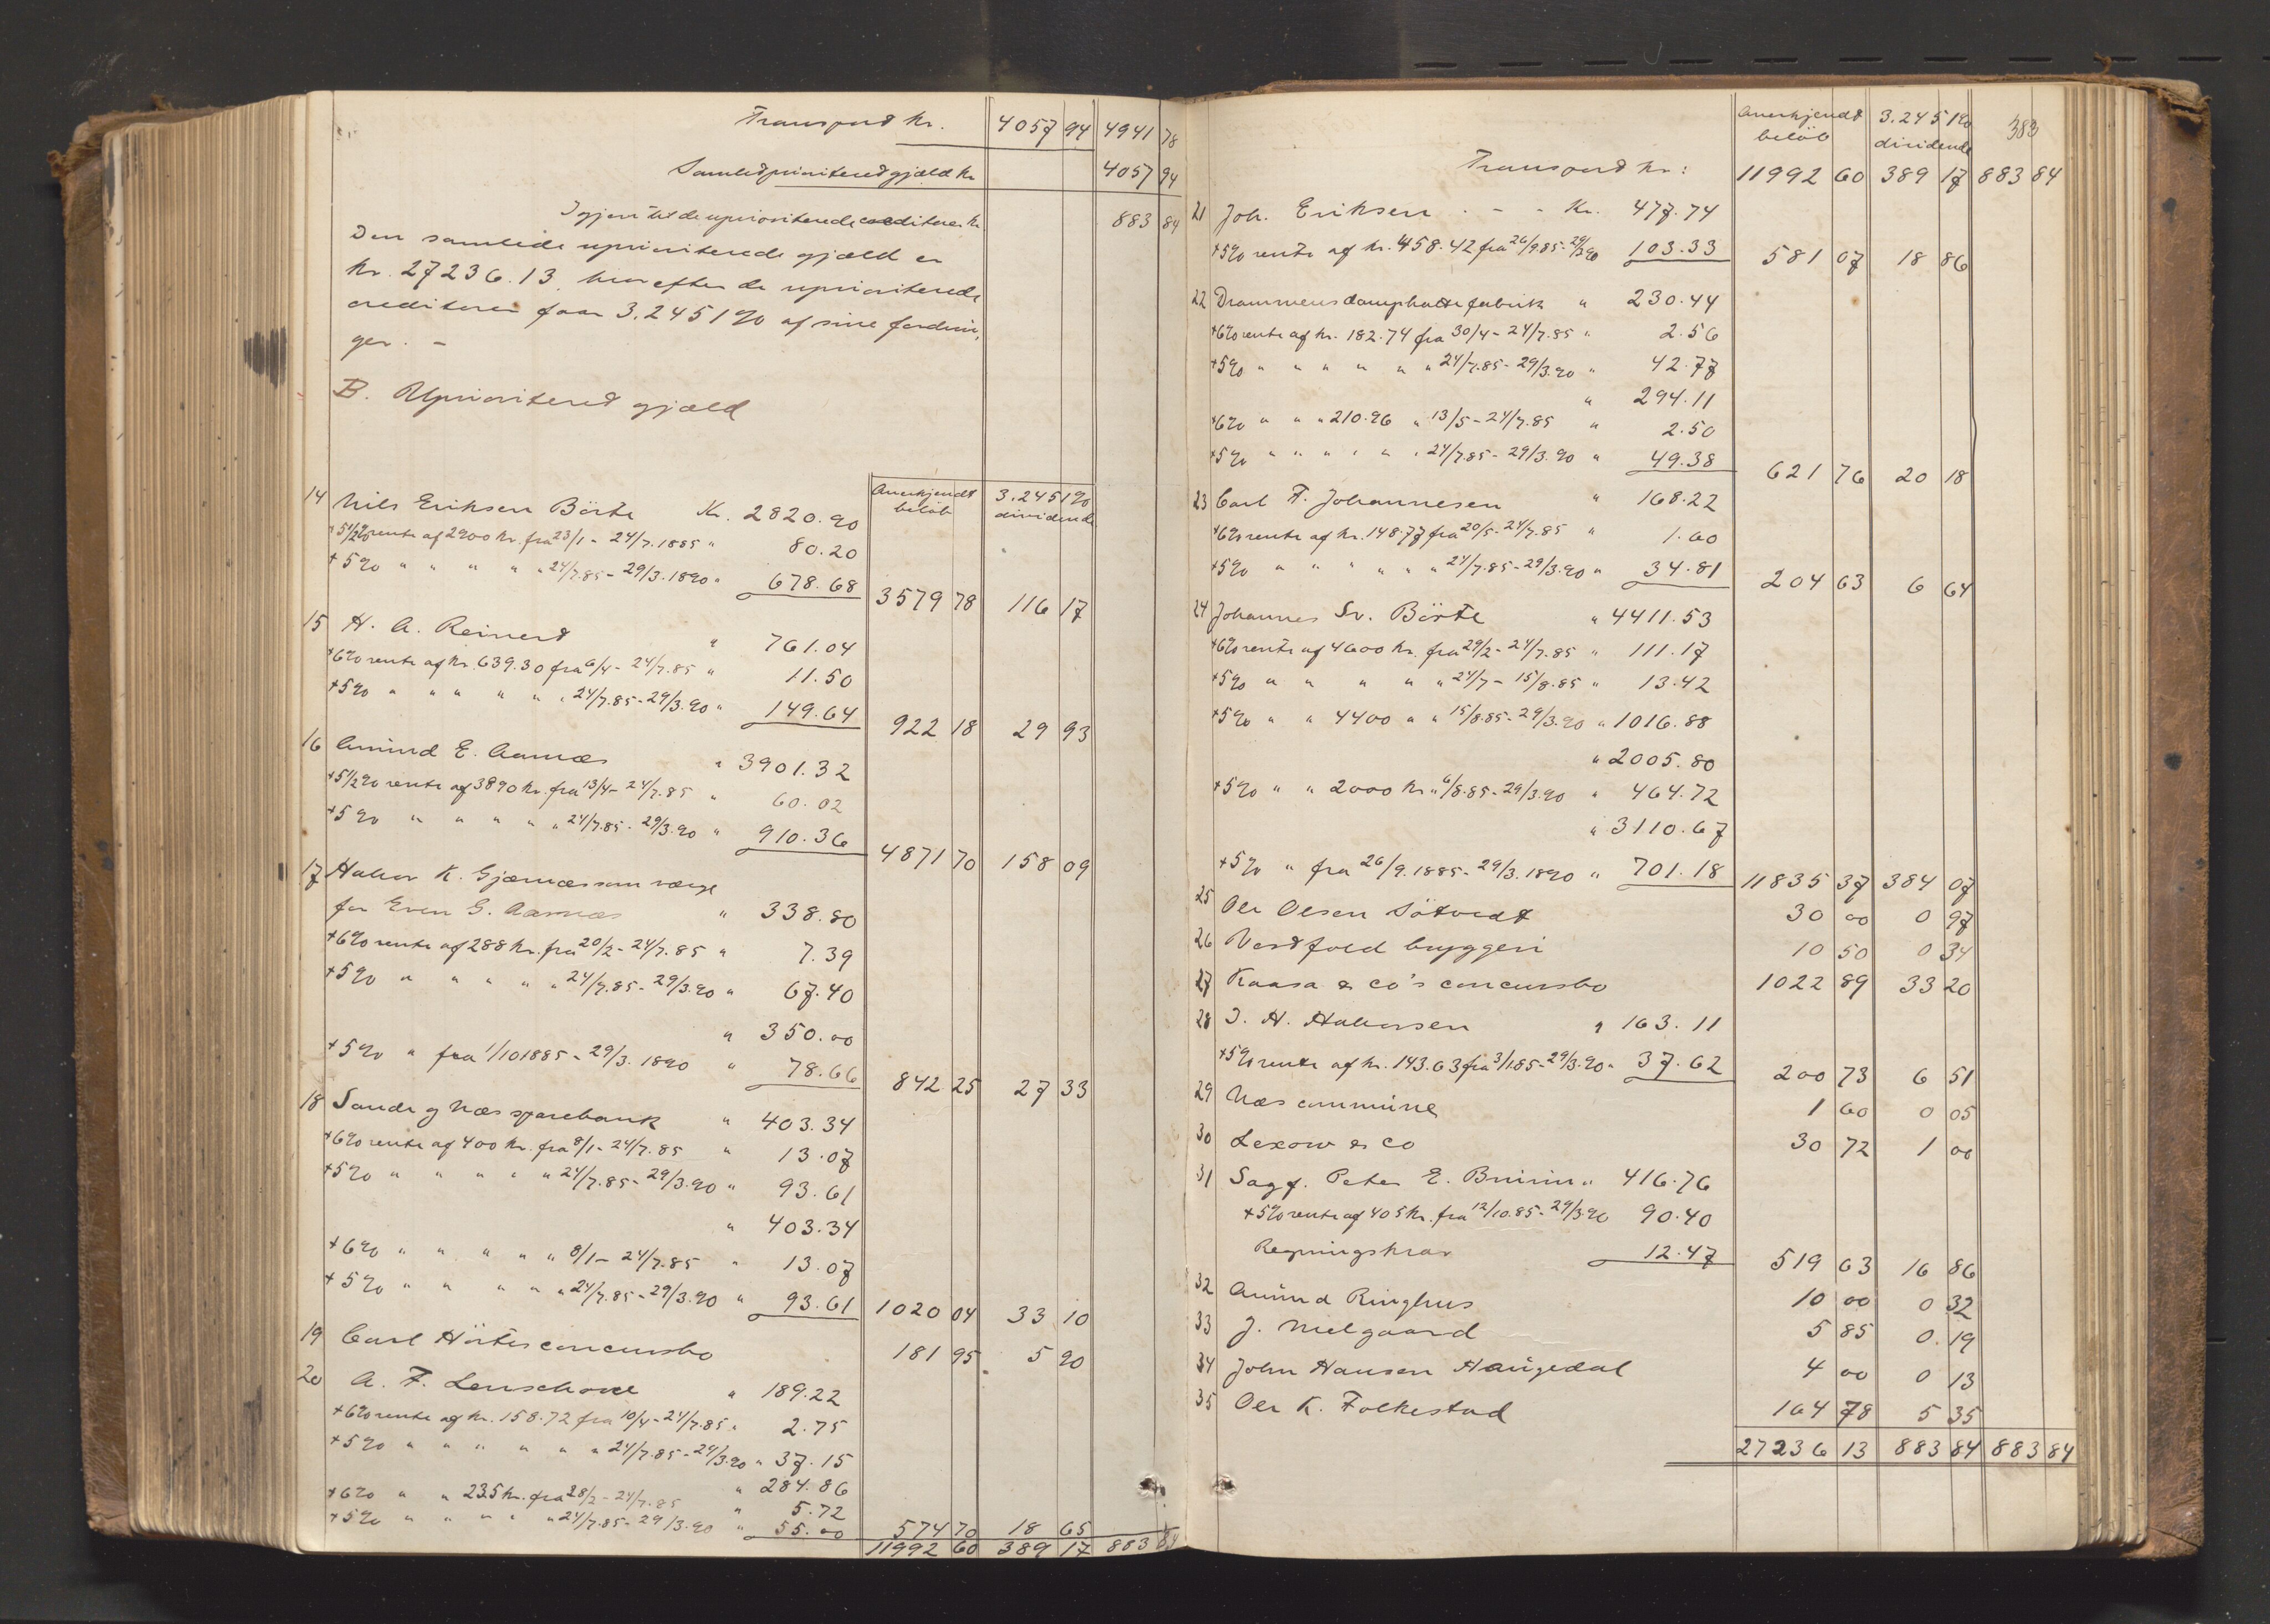 Transport Kr. 4057 94 4941 78
Samled prioritered gjæld Kr 4057 94
Igjen til de uprioriterede creditorer Kr 883 84
Den samlede uprioriterede gjæld er
Kr. 27236.13, hvorefter de uprioriterede
creditorer faar 3.2451% af sine fordrin-
ger. -
B. Uprioritered gjæld
Anerkjendt beløb 3.2451% dividende
14 Nils Eriksen Börte Kr. 2820.90
+ 5 1/2% rente af 2900 Kr. fra 23/1 - 24/7.1885 " 80.20
+ 5% " " " " " 24/7.85 - 29/3.1890 " 678.68 3579 78 116 17
15 H. A. Reinert " 761.04
+6% rente af Kr. 639.30 fra 6/4 - 24/7.85 " 11.50
+5% " " " " " 24/7.85 - 29/3.90 " 149.64 922 18 29 93
16 Amund E. Aarnæs " 3901.32
+5 1/2% rente af 3890 Kr. fra 13/4 - 24/7.85 " 60.02
+5% " " " " " 24/7.85 - 29/3.90 " 910.36 4871 70 158 09
17 Halvor K. Gjærnæs som værge
for Even G. Aarnæs " 338.80
+6% rente af 288 Kr. fra 20/2 - 24/7.85 " 7.39
+5% " " " " " 24/7.85 - 29/3.90 " 67.40
" 350.00
+5% " fra 1/10 1885 - 29/3.1890 " 78.66 842 25 27 33
18 Sande og Næs sparebank " 403.34
+6% rente af 400 Kr. fra 8/1 - 24/7.85 " 13.07
+5% " " " " " 24/7.85 - 29/3.90 " 93.61
" 403.34
+6% " " " " " 8/1 - 24/7.85 " 13.07
+5% " " " " " 24/7.85 - 29/3.90 " 93.61 1020 04 33 10
19 Carl Hörtes concursbo 181 95 5 90
20 A. F. Lenschow " 189.22
+6% rente af Kr. 158.72 fra 10/4 - 24/7.85 " 2.75
+5% " " " " " " 24/7.85 - 29/3.90 " 37.15
" 284.86
+6% " " 235 Kr. fra 28/2 - 24/7.85 " 5.72
+5% " " " " " 24/7.85 - 29/3.90 " 55.00 574 70 18 65
11992 60 389 17 883 84
383
Anerkjendt beløb 3.2451% dividende
Transport Kr: 11992 60 389 17 883 84
21 Joh. Eriksen . - - Kr. 477.74
+5% rente af Kr. 458.42 fra 26/9.85 - 29/3.90 103.33 581 07 18 86
22 Drammens damphattefabrik " 230.44
+6% rente af Kr. 182.74 fra 30/4 - 24/7.85 " 2.56
+5% " " " " " " 24/7.85 - 29/3.90 " 42.77
" 294.11
+6% " " " 210.96 " 13/5 - 24/7.85 " 2.50
+5% " " " " " " 24/7.85 - 29/3.90 " 49.38 621 76 20 18
23 Carl F. Johannesen " 168.22
+6% rente af Kr. 148.77 fra 20/5 - 24/7.85 " 1.60
+5% " " " " " " 24/7.85 - 29/3.90 " 34.81 204 63 6 64
24 Johannes Sv. Börte " 4411.53
+6% rente af 4600 Kr. fra 29/2 - 24/7.85 " 111.17
+5% " " " " " 24/7 - 15/8.85 " 13.42
+5% " " 4400 " " 15/8.85 - 29/3.90 " 1016.88
" 2005.80
+5% " " 2000 Kr " 6/8.85 - 29/3.90 " 464.72
" 3110.67
+5% " fra 26/9.1885 - 29/3.1890 " 701.18 11835 37 384 07
25 Ole Olsen Sötvedt 30 00 0 97
26 Vestfold bryggeri 10 50 0 34
27 Kaasa & co's concursbo 1022 89 33 20
28 I. H. Halvorsen " 163.11
+5% rente af Kr. 143.63 fra 3/1.85 - 29/3.90 " 37.62 200 73 6 51
29 Næs commune 1 60 0 05
30 Lexow & co 30 72 1 00
31 Sagf. Peter E. Bruun " 416.76
+5% rente af 405 Kr. fra 12/10.85 - 29/3.90 90.40
Regningskrav 12.47 519 63 16 86
32 Amund Ringhus 10 00 0 32
33 J. Melgaard 5 85 0.19
34 John Hansen Haugedal 4 00 0 13
35 Ole K. Folkestad 164 78 5 35
27236 13 883 84 883 84